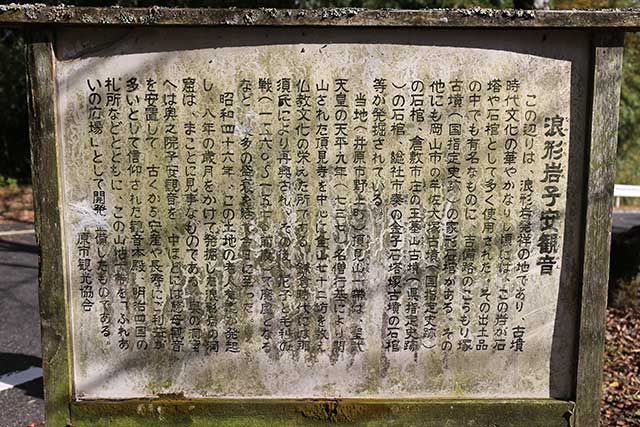 浪形岩子安観音
この辺りは、浪形岩発祥の地であり、古墳
時代文化の華やかなりし頃には、この岩が石
塔や石棺として多く使用された。その出土品
の中でも有名なものに、吉備路のこうもり塚
古墳(国指定史跡)の家形石棺がある。その
他にも岡山市の牟佐大塚古墳(国指定史跡)
の石棺、倉敷市庄の王墓山古墳(県指定史跡
)の石棺、総社市秦の金子石塔塚古墳の石棺
等が発掘されている。
当地(井原市野上町)頂見山一帯は、聖武
天皇の天平九年(七三七)名僧行基により開
山された頂見寺を中心に全山七十二坊を数え
仏教文化の栄えた所である。鎌倉時代には那
須氏により再興され、その後、尼子と毛利の
戦(一五六〇〜一五七〇前後)で廃虚となる
など、多の盛衰を経て今日に至った。
昭和四十六年、この土地の老人
し、八年の歳月をかけて発掘した浪形岩の洞
窟は、まことに見事なものであ
へは奥之院子安観音を、中ほどには
を安置して、古くから安産や長寿にご利益が
多いとして信仰された観音本殿、明治四国の
札所などとともに、この山地一帯を「ふれあ
いの広場」として開発整備したものである。
井原市観光協会